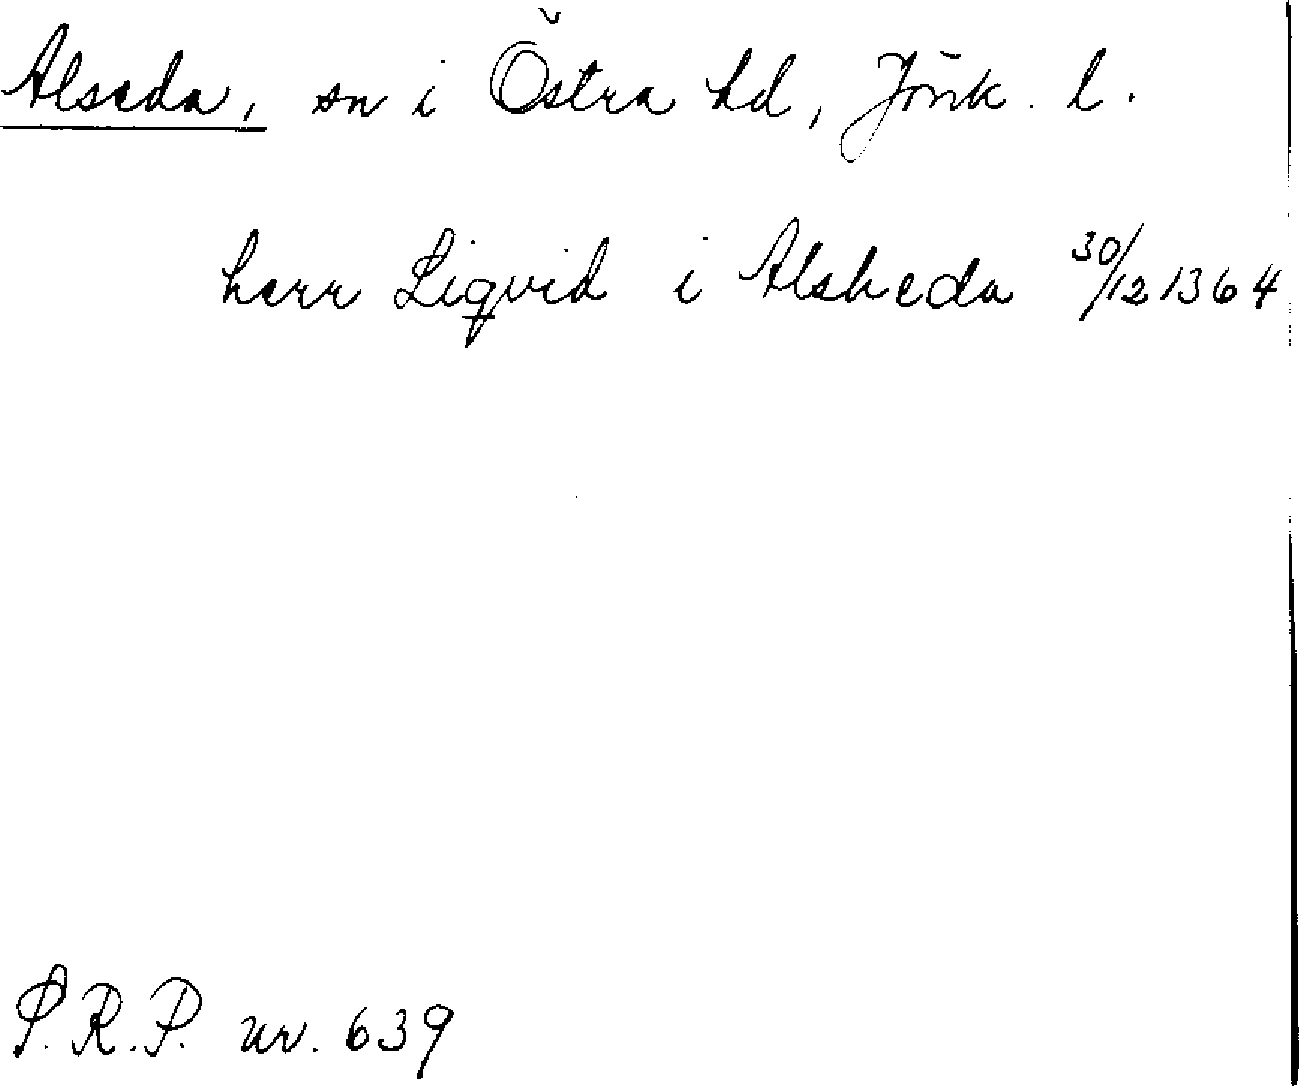 Alseda, sn i Östra hd, Jönk. l.
herr Liqvid i Alsheda 30/12 1364
P.R.P. nr. 639